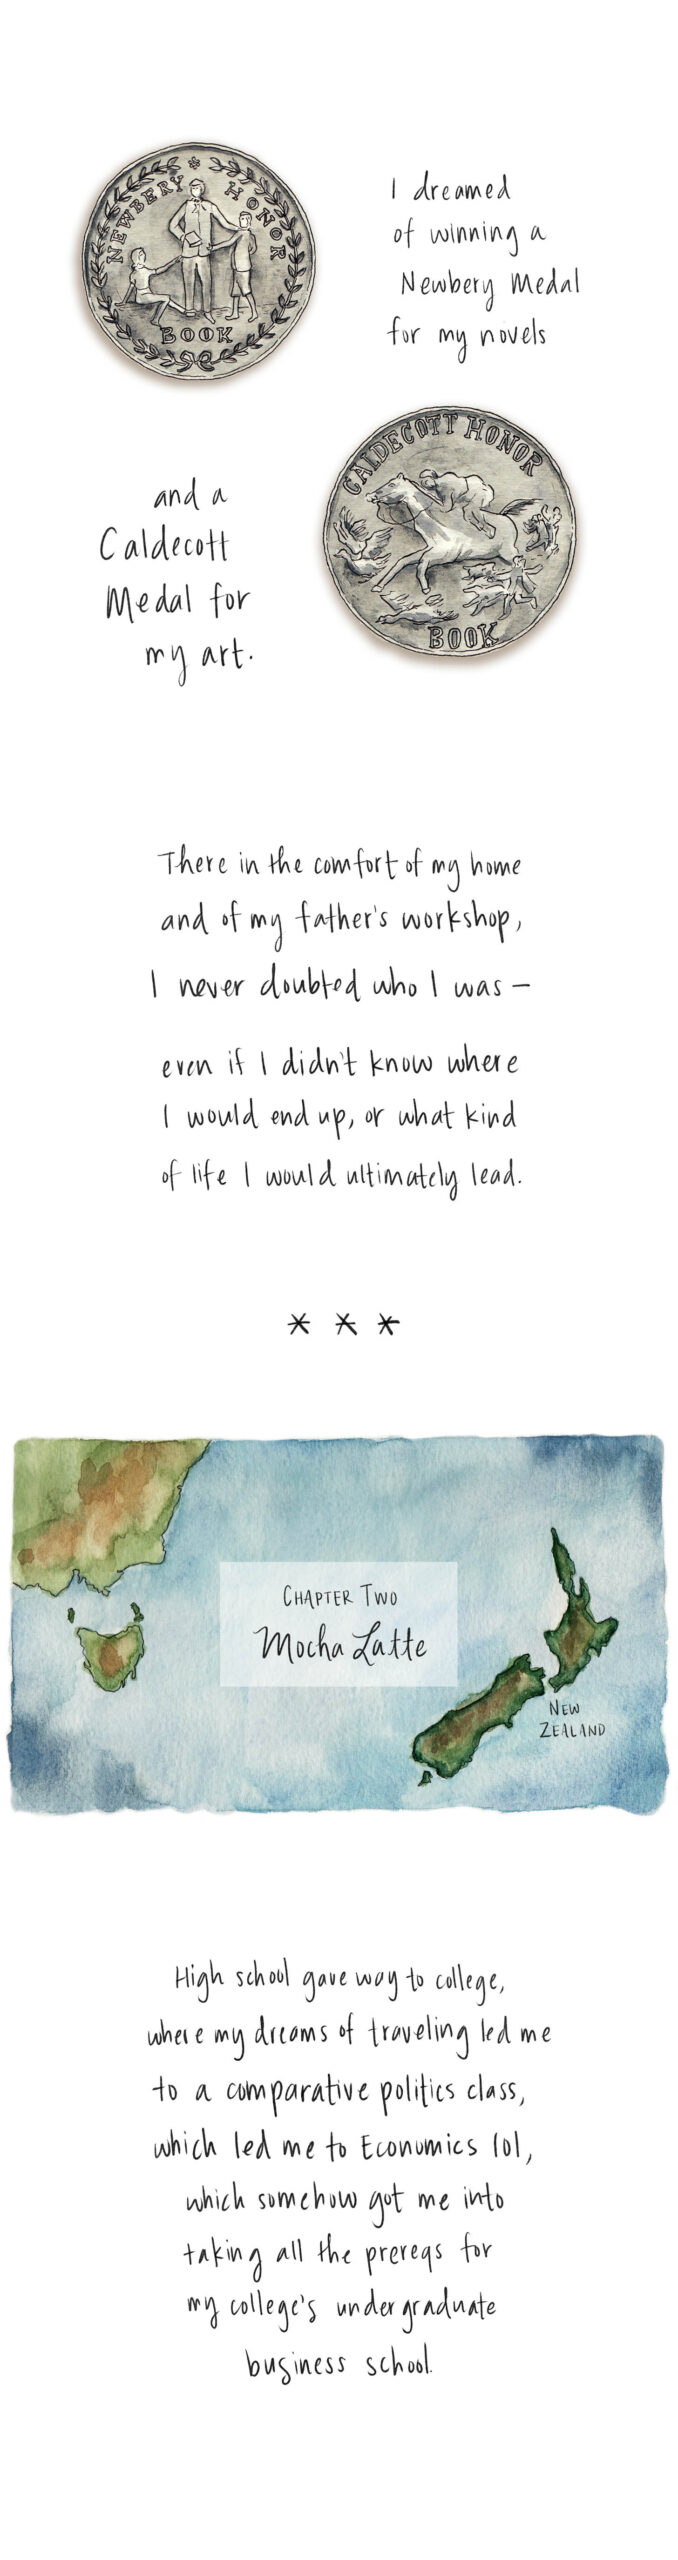 NEWBERY HONOR
BOOK
I dreamed
of winning a
Newbery Medal
for my novels
CALDECOTT HONOR
BOOK
and a
Caldecott
Medal for
my art.
There in the comfort of my home
and of my father's workshop,
I never doubted who I was –
even if I didn't know where
I would end up, or what kind
of life I would ultimately lead.
* * *
CHAPTER TWO
Mocha Latte
NEW
ZEALAND
High school gave way to college,
where my dreams of traveling led me
to a comparative politics class,
which led me to Economics 101,
which somehow got me into
taking all the prereqs for
my college's undergraduate
business school.